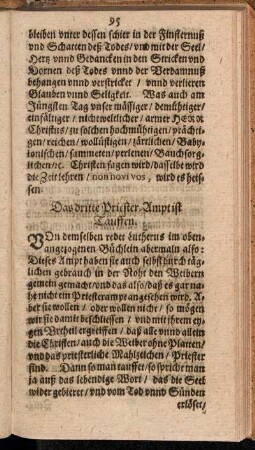 95
bleiben vnter dessen schier in der Finsternuß
vnd Schatten deß Todes / vnd mit der Seel /
Hertz vnnd Gedancken in den Stricken vnd
Hörnen deß Todes vnnd der Verdamnuß
behangen vnnd verstricket / vnnd verlieren
Glauben vnnd Seligkeit. Was auch am
Jüngsten Tag vnser mässiger / demühtiger /
einfältiger / nicht weltlicher / armer HERR
Christus / zu solchen hochmühtigen / prächti-
gen / reichen / wollüstigen / zärtlichen / Baby-
lonischen / sammeten / perlenen / Bauchsor-
glichen / ꝛc. Christen sagen wird / dasselbe wird
die Zeit lehren / non novi vos, wird es heis-
sen.
Das dritte Priester-Ampt ist
Tauffen.
VOn demselben redet Lutherus im oben
angezogenen Büchlein abermaln also:
Dieses Ampt haben sie auch selbst durch täg-
lichen gebrauch in der Noht den Weibern
gemein gemacht / vnd das also / daß es gar na-
he nicht ein Priesterampt angesehen wird. A-
ber sie wollen / oder wollen nicht / so mögen
wir sie damit beschliessen / vnd mit ihrem ey-
gen Vrtheil ergreiffen / daß alle vnnd allein
die Christen / auch die Weiber ohne Platten /
vnd das priesterliche Mahlzeichen / Priester
sind. Dann so man tauffet / so spricht man
ja auß das lebendige Wort / das die Seel
wider gebieret / vnd vom Tod vnnd Sünden
erlöset /